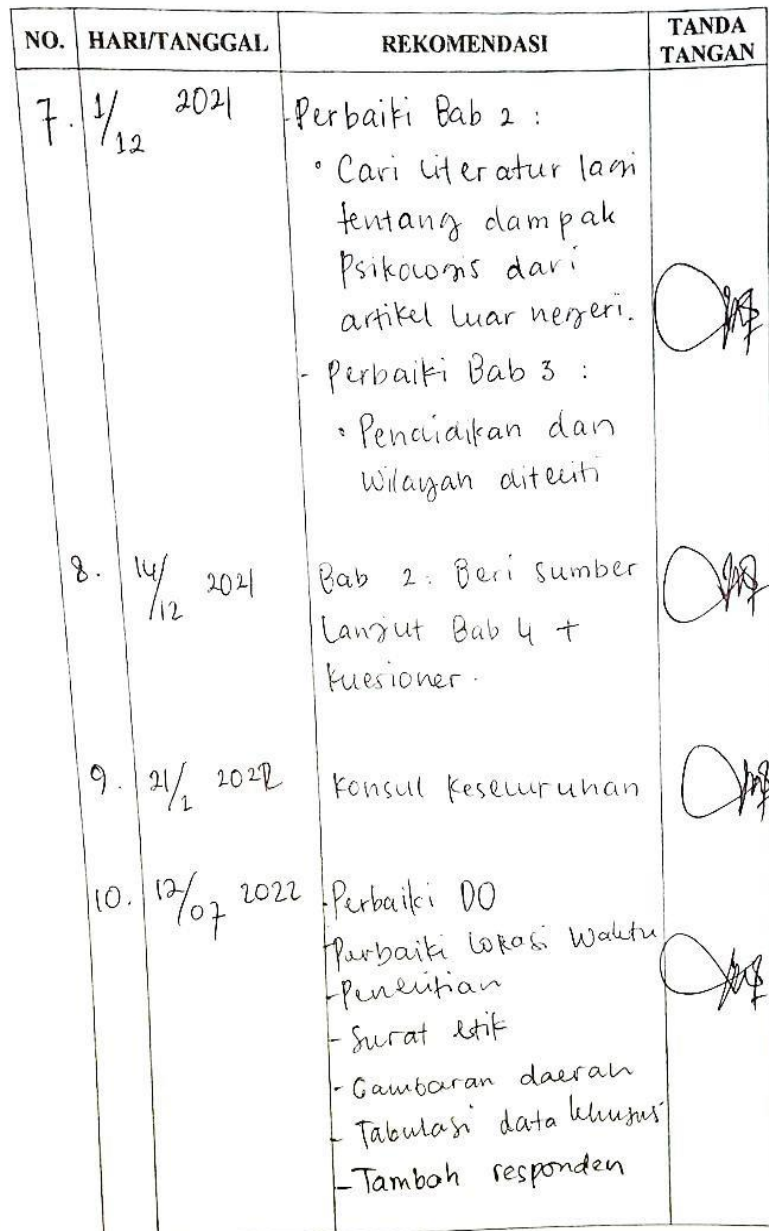 NO. HARI/TANGGAL REKOMENDASI TANDA TANGAN
7. 1/12 2021 - Perbaiki Bab 2 :
• Cari literatur lagi
tentang dampak
Psikologis dari
artikel luar negeri.
- Perbaiki Bab 3 :
• Pendidikan dan
wilayah diteliti
8. 14/12 2021 Bab 2 : Beri sumber
Lanjut Bab 4 +
kuesioner.
9. 21/2 2022 Konsul keseluruhan
10. 12/07 2022 - Perbaiki DO
- Perbaiki lokasi waktu
- Penelitian
- Surat etik
- Gambaran daerah
- Tabulasi data khusus
- Tambah responden